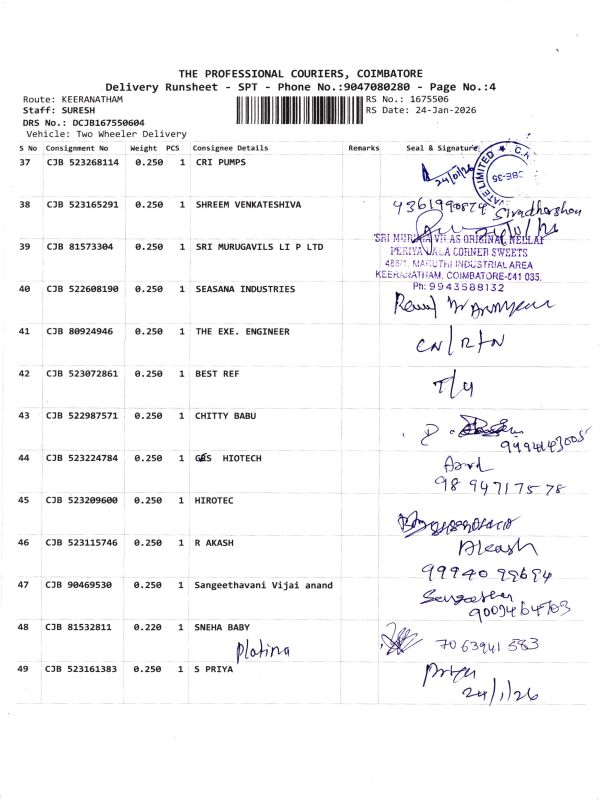 THE PROFESSIONAL COURIERS, COIMBATORE
Delivery Runsheet - SPT - Phone No.:9047080280 - Page No.:4
Route: KEERANATHAM
RS No.: 1675506
Staff: SURESH
RS Date: 24-Jan-2026
DRS No.: DCJB167550604
Vehicle: Two Wheeler Delivery
S No Consignment No Weight PCS Consignee Details Remarks Seal & Signature
37 CJB 523268114 0.250 1 CRI PUMPS 24/01/26
38 CJB 523165291 0.250 1 SHREEM VENKATESHIVA
39 CJB 81573304 0.250 1 SRI MURUGAVILS LI P LTD
PERIYA LALA CORNER SWEETS
486/1, MARUTHI INDUSTRIAL AREA
KEERANATHAM, COIMBATORE-641 035.
Ph: 9943588132
40 CJB 522608190 0.250 1 SEASANA INDUSTRIES
41 CJB 80924946 0.250 1 THE EXE. ENGINEER CN/R/N
42 CJB 523072861 0.250 1 BEST REF
43 CJB 522987571 0.250 1 CHITTY BABU
44 CJB 523224784 0.250 1 HIOTECH
98 94717578
45 CJB 523209600 0.250 1 HIROTEC
46 CJB 523115746 0.250 1 R AKASH Akash
47 CJB 90469530 0.250 1 Sangeethavani Vijai anand
48 CJB 81532811 0.220 1 SNEHA BABY
Platina
49 CJB 523161383 0.250 1 S PRIYA Priya
24/1/26